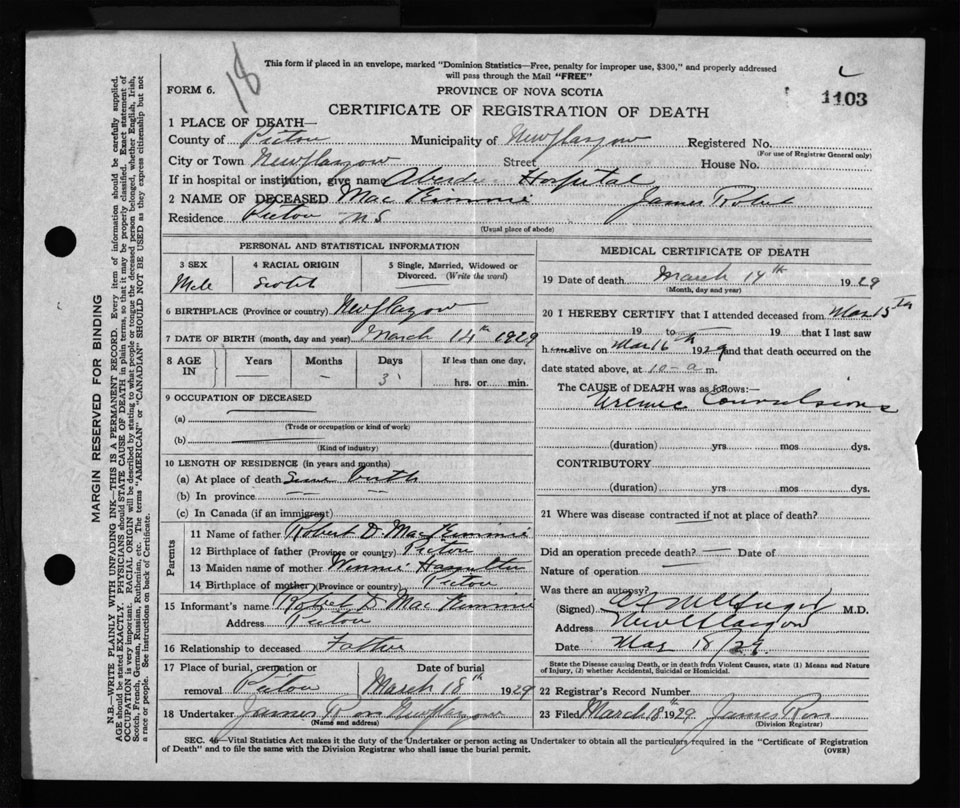 18
This form if placed in an envelope, marked "Dominion Statistics—Free, penalty for improper use, $300," and properly addressed
will pass through the Mail "FREE"
FORM 6.
PROVINCE OF NOVA SCOTIA
1103
CERTIFICATE OF REGISTRATION OF DEATH
1 PLACE OF DEATH—
County of Pictou Municipality of New Glasgow Registered No.
(For use of Registrar General only)
City or Town New Glasgow Street House No.
If in hospital or institution, give name Hospital
2 NAME OF DECEASED MacKimmie James Robert
Residence Pictou N S
(Usual place of abode)
PERSONAL AND STATISTICAL INFORMATION
3 SEX 4 RACIAL ORIGIN 5 Single, Married, Widowed or
Divorced. (Write the word)
Male
6 BIRTHPLACE (Province or country) New Glasgow
7 DATE OF BIRTH (month, day and year) March 14th 1929
8 AGE IN Years Months Days If less than one day,
— — 3 hrs. or min.
9 OCCUPATION OF DECEASED
(a)
(Trade or occupation or kind of work)
(b)
(Kind of industry)
10 LENGTH OF RESIDENCE (in years and months)
(a) At place of death Since birth
(b) In province — —
(c) In Canada (if an immigrant)
Parents
11 Name of father Robert D MacKimmie
12 Birthplace of father (Province or country) Pictou
13 Maiden name of mother Winnie Hamilton
14 Birthplace of mother (Province or country) Pictou
15 Informant's name Robert D MacKimmie
Address Pictou
16 Relationship to deceased Father
17 Place of burial, cremation or removal Pictou
Date of burial March 18th 1929
18 Undertaker James Ross New Glasgow
(Name and address)
MEDICAL CERTIFICATE OF DEATH
19 Date of death March 17th 1929
(Month, day and year)
20 I HEREBY CERTIFY that I attended deceased from Mar 15th
19 to 19 that I last saw
h alive on Mar 16th 1929 and that death occurred on
date stated above, at 10 - a m.
The CAUSE of DEATH was as follows:—
Uremic Convulsions
(duration) yrs mos dys.
CONTRIBUTORY
(duration) yrs mos dys.
21 Where was disease contracted if not at place of death?
Did an operation precede death? — Date of
Nature of operation
Was there an autopsy?
(Signed) M.D.
Address New Glasgow
Date Mar 18/29
State the Disease causing Death, or in death from Violent Causes, state (1) Means and Nature
of Injury, (2) whether Accidental, Suicidal or Homicidal.
22 Registrar's Record Number
23 Filed March 18th 1929 James Ross
(Division Registrar)
SEC. 46—Vital Statistics Act makes it the duty of the Undertaker or person acting as Undertaker to obtain all the particulars required in the "Certificate of Registration
of Death" and to file the same with the Division Registrar who shall issue the burial permit.
(OVER)
MARGIN RESERVED FOR BINDING
N.B.—WRITE PLAINLY WITH UNFADING INK—THIS IS A PERMANENT RECORD. Every item of information should be carefully supplied.
AGE should be stated EXACTLY. PHYSICIANS should STATE CAUSE OF DEATH in plain terms, so that it may be properly classified. Exact statement of
OCCUPATION is very important. RACIAL ORIGIN will be described by stating to what people or tongue the deceased person belonged, whether English, Irish,
Scotch, French, German, Russian, Ruthenian, etc. The terms "AMERICAN" or "CANADIAN" SHOULD NOT BE USED as they express citizenship but not
a race or people. See instructions on back of Certificate.